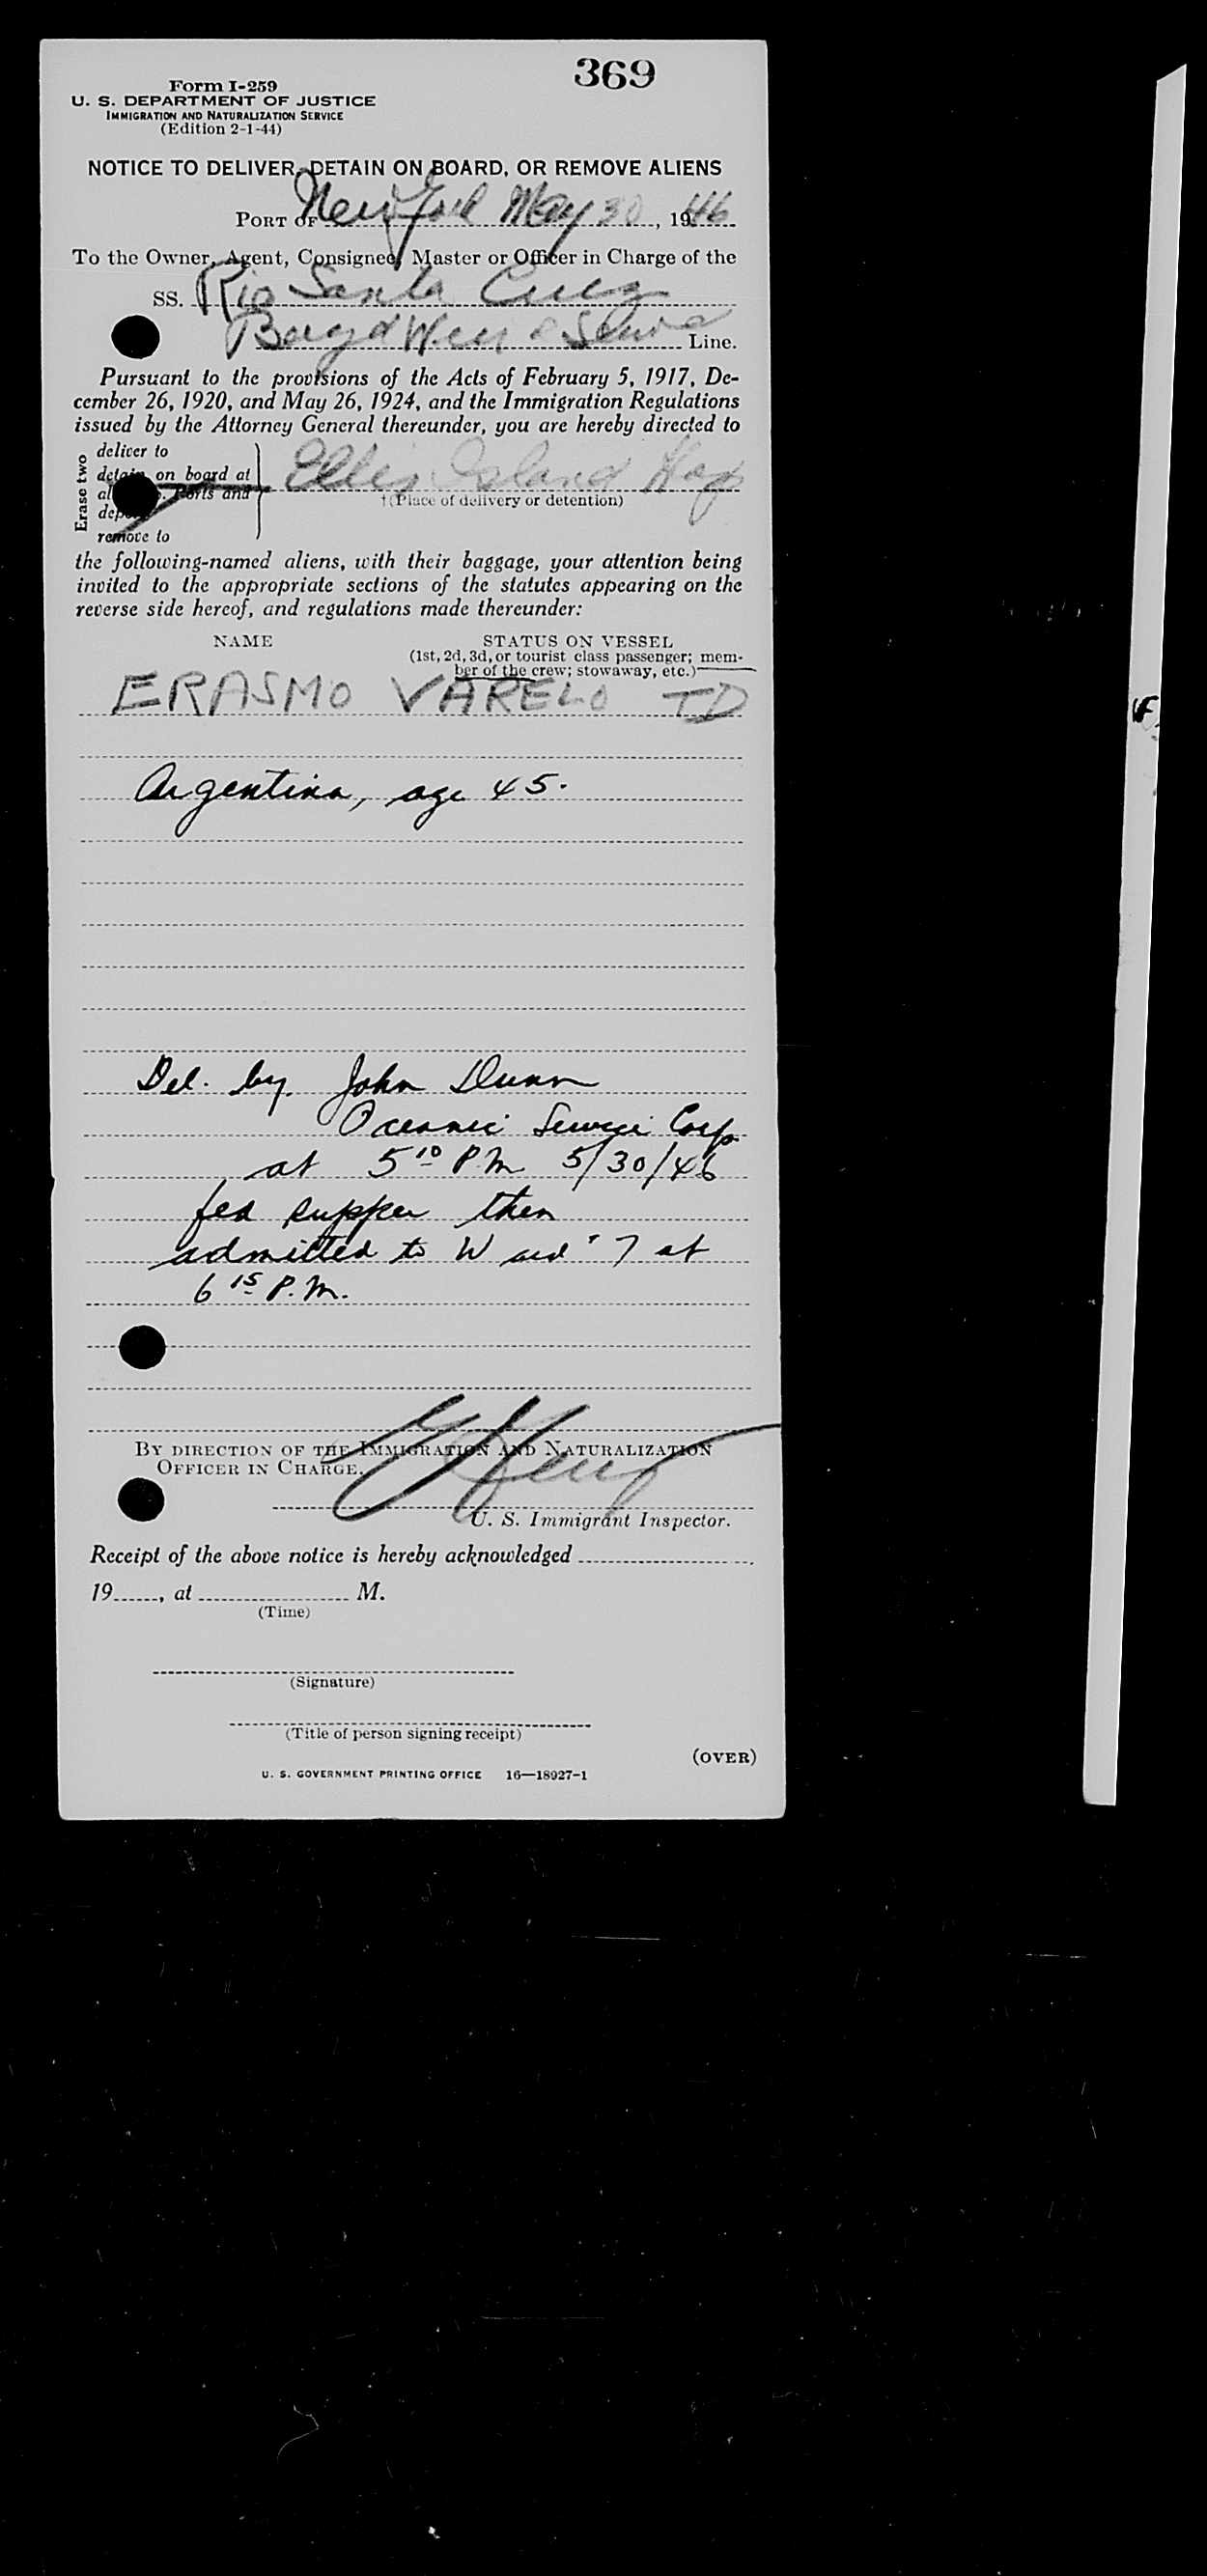 369
Form I-259
U. S. DEPARTMENT OF JUSTICE
IMMIGRATION AND NATURALIZATION SERVICE
(Edition 2-1-44)
NOTICE TO DELIVER, DETAIN ON BOARD, OR REMOVE ALIENS
PORT OF New York May 30, 1946
To the Owner, Agent, Consignee, Master or Officer in Charge of the
SS. Rio Santa Cruz
Boyd Weir & Line.
Pursuant to the provisions of the Acts of February 5, 1917, De-
cember 26, 1920, and May 26, 1924, and the Immigration Regulations
issued by the Attorney General thereunder, you are hereby directed to
Erase two
deliver to
detain on board at
Ports and
remove to
Ellis Island Hosp
†(Place of delivery or detention)
the following-named aliens, with their baggage, your attention being
invited to the appropriate sections of the statutes appearing on the
reverse side hereof, and regulations made thereunder:
NAME STATUS ON VESSEL
(1st, 2d, 3d, or tourist class passenger; mem-
ber of the crew; stowaway, etc.)
ERASMO VARELO TD
Argentina, age 45.
Del. by John Dunn
Oceanic Service Corp.
at 5 10 P.M. 5/30/46
fed supper then
admitted to Ward 7 at
6 15 P.M.
BY DIRECTION OF THE IMMIGRATION AND NATURALIZATION
OFFICER IN CHARGE.
U. S. Immigrant Inspector.
Receipt of the above notice is hereby acknowledged
19, at M.
(Time)
(Signature)
(Title of person signing receipt)
(OVER)
U. S. GOVERNMENT PRINTING OFFICE 16—18927-1